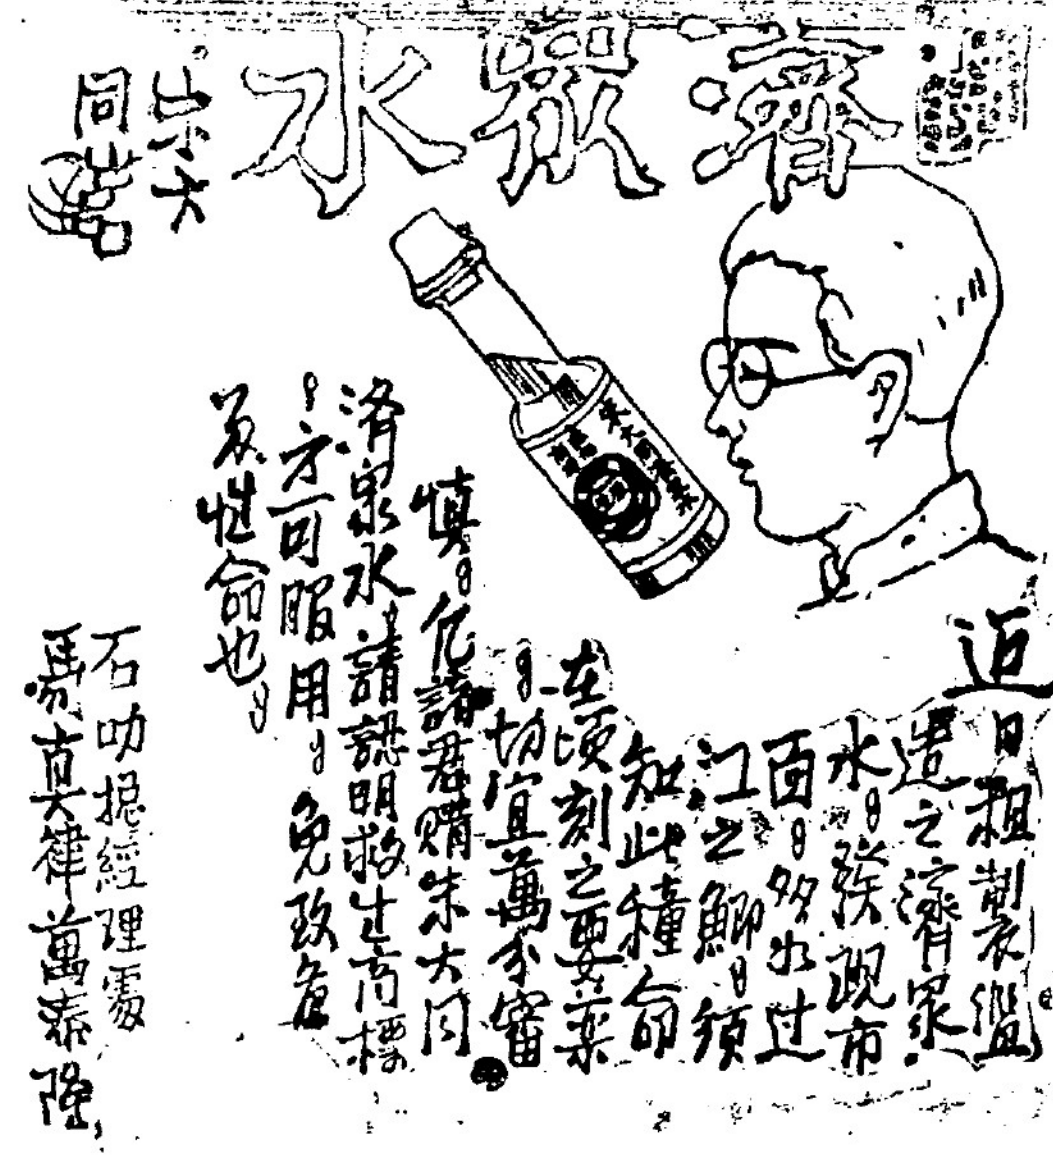 濟眾水
近日粗製濫
造之濟眾
水，發現市
面，多如过
江之鯽，須
知此種命
在頃刻之要藥
，切宜萬分審
慎，凡諸君購朱大同
濟眾水，請認明救生商標
，方可服用，免致危
及性命也，
石叻總經理處
馬真律萬泰隆